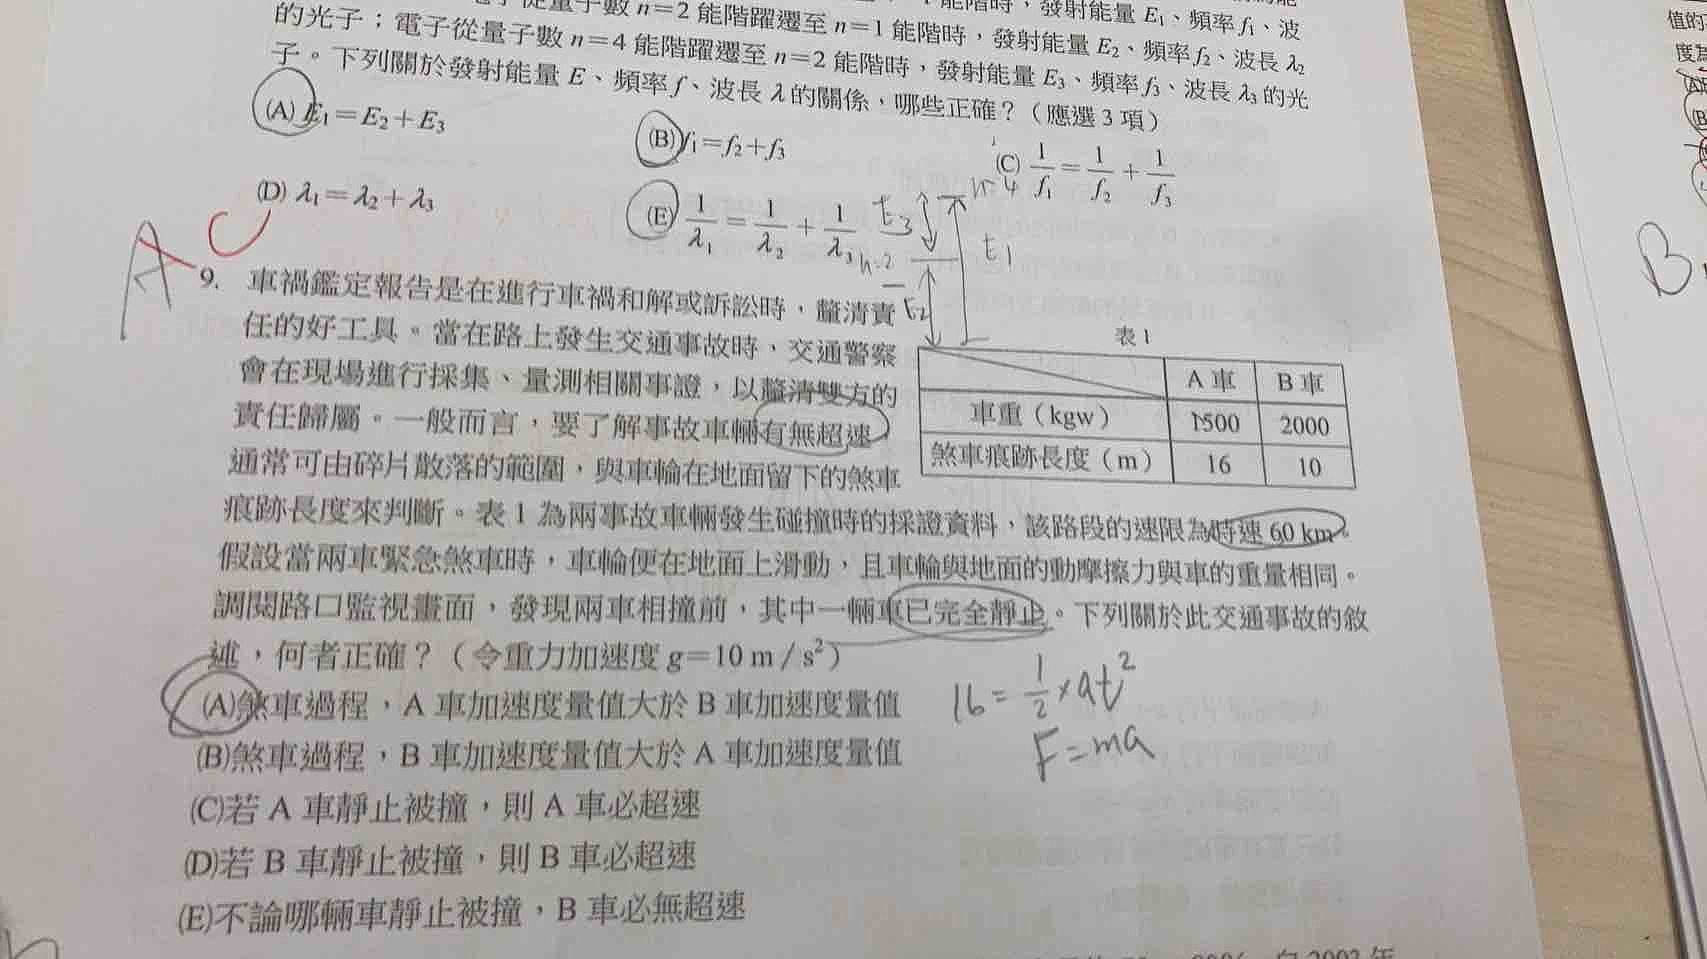 數 n=2 能階躍遷至 n=1 能階時，發射能量 E₂、頻率 f₂、波長 λ₂
能階時，發射能量 E₁、頻率 f₁、波
的光子；電子從量子數 n=4 能階躍遷至 n=2 能階時，發射能量 E₃、頻率 f₃、波長 λ₃ 的光
子。下列關於發射能量 E、頻率 f、波長 λ 的關係，哪些正確？（應選 3 項）
(A) E₁=E₂+E₃
(B) f₁=f₂+f₃
(C) 1/f₁ = 1/f₂ + 1/f₃
(D) λ₁=λ₂+λ₃
(E) 1/λ₁ = 1/λ₂ + 1/λ₃
n=4
E3
E1
n=2
E2
A
C
9. 車禍鑑定報告是在進行車禍和解或訴訟時，釐清責
任的好工具。當在路上發生交通事故時，交通警察
會在現場進行採集、量測相關事證，以釐清雙方的
責任歸屬。一般而言，要了解事故車輛有無超速，
通常可由碎片散落的範圍，與車輪在地面留下的煞車
痕跡長度來判斷。表 1 為兩事故車輛發生碰撞時的採證資料，該路段的速限為時速 60 km。
假設當兩車緊急煞車時，車輪便在地面上滑動，且車輪與地面的動摩擦力與車的重量相同。
調閱路口監視畫面，發現兩車相撞前，其中一輛車已完全靜止。下列關於此交通事故的敘
述，何者正確？（令重力加速度 g=10 m/s²）
表 1
A 車 B 車
車重（kgw） 1500 2000
煞車痕跡長度（m） 16 10
(A)煞車過程，A 車加速度量值大於 B 車加速度量值
(B)煞車過程，B 車加速度量值大於 A 車加速度量值
(C)若 A 車靜止被撞，則 A 車必超速
(D)若 B 車靜止被撞，則 B 車必超速
(E)不論哪輛車靜止被撞，B 車必無超速
16 = 1/2 × at²
F=ma
值的
B